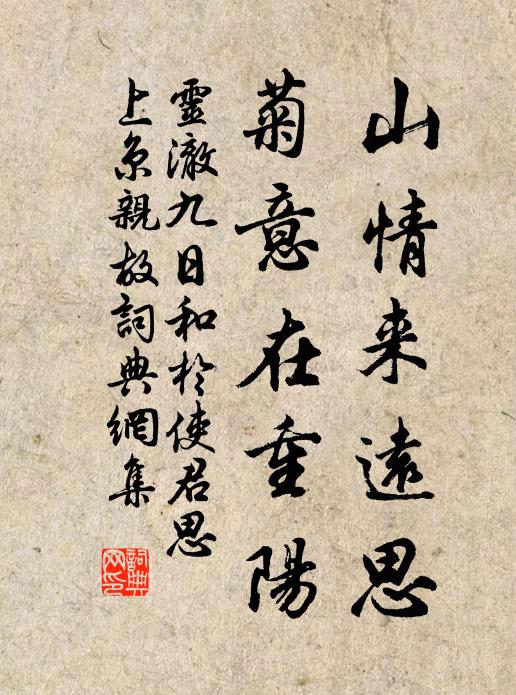 山情来遠思
菊意在重陽
靈澈九日和於使君思
上京親故詞典網集
詞典
网印